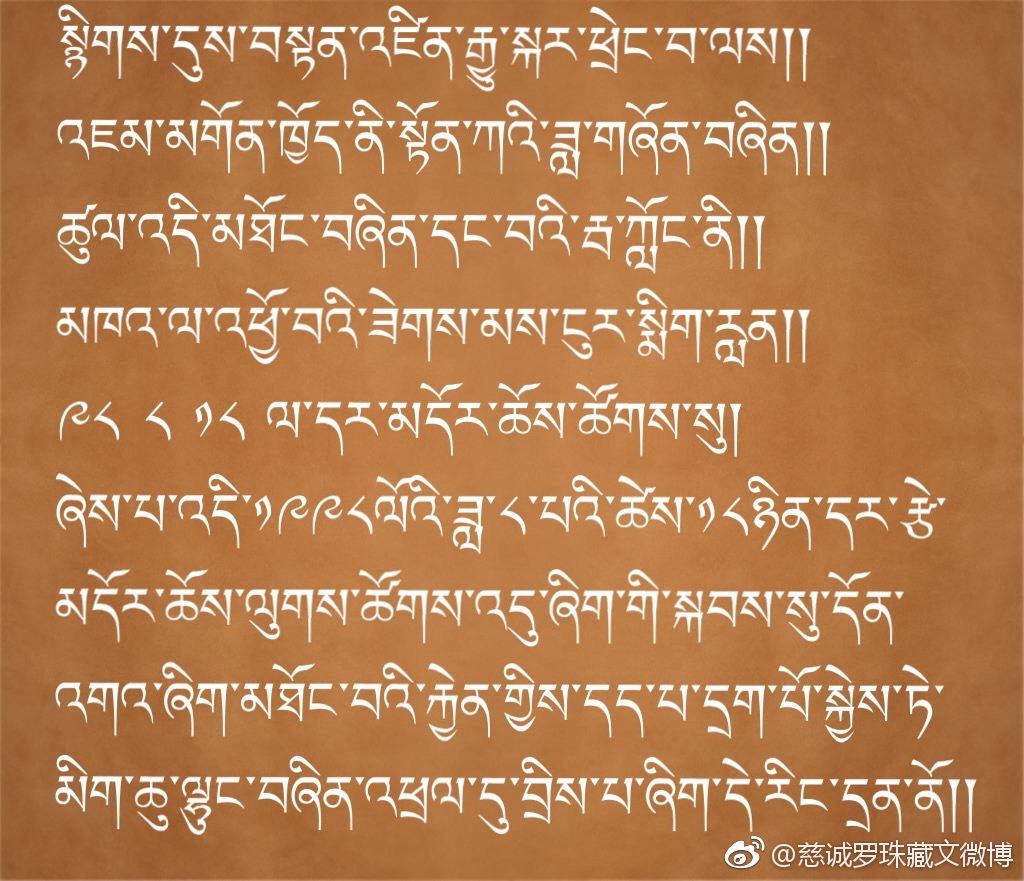 སྙིགས་དུས་བསྟན་འཛིན་རྒྱུ་སྐར་ཕྲེང་བ་ལས།།
འཇམ་མགོན་ཁྱོད་ནི་སྟོན་ཀའི་ཟླ་གཞོན་བཞིན།།
ཚུལ་འདི་མཐོང་བཞིན་དང་བའི་རྦ་ཀློང་ནི།།
མཁའ་ལ་འཕྱོ་བའི་ཟེགས་མས་ངུར་སྨྲིག་རླན།།
༩༨ ༨ ༡༨ ལ་དར་མདོར་ཆོས་ཚོགས་སུ།
ཞེས་པ་འདི་༡༩༩༨ལོའི་ཟླ་༨་པའི་ཚེས་༡༨ཉིན་དར་རྩེ་
མདོར་ཆོས་ལུགས་ཚོགས་འདུ་ཞིག་གི་སྐབས་སུ་དོན་
འགའ་ཞིག་མཐོང་བའི་རྐྱེན་གྱིས་དད་པ་དྲག་པོ་སྐྱེས་ཏེ་
མིག་ཆུ་ལྟུང་བཞིན་འཕྲལ་དུ་བྲིས་པ་ཞིག་དེ་རིང་དྲན་ནོ།།
@慈诚罗珠藏文微博